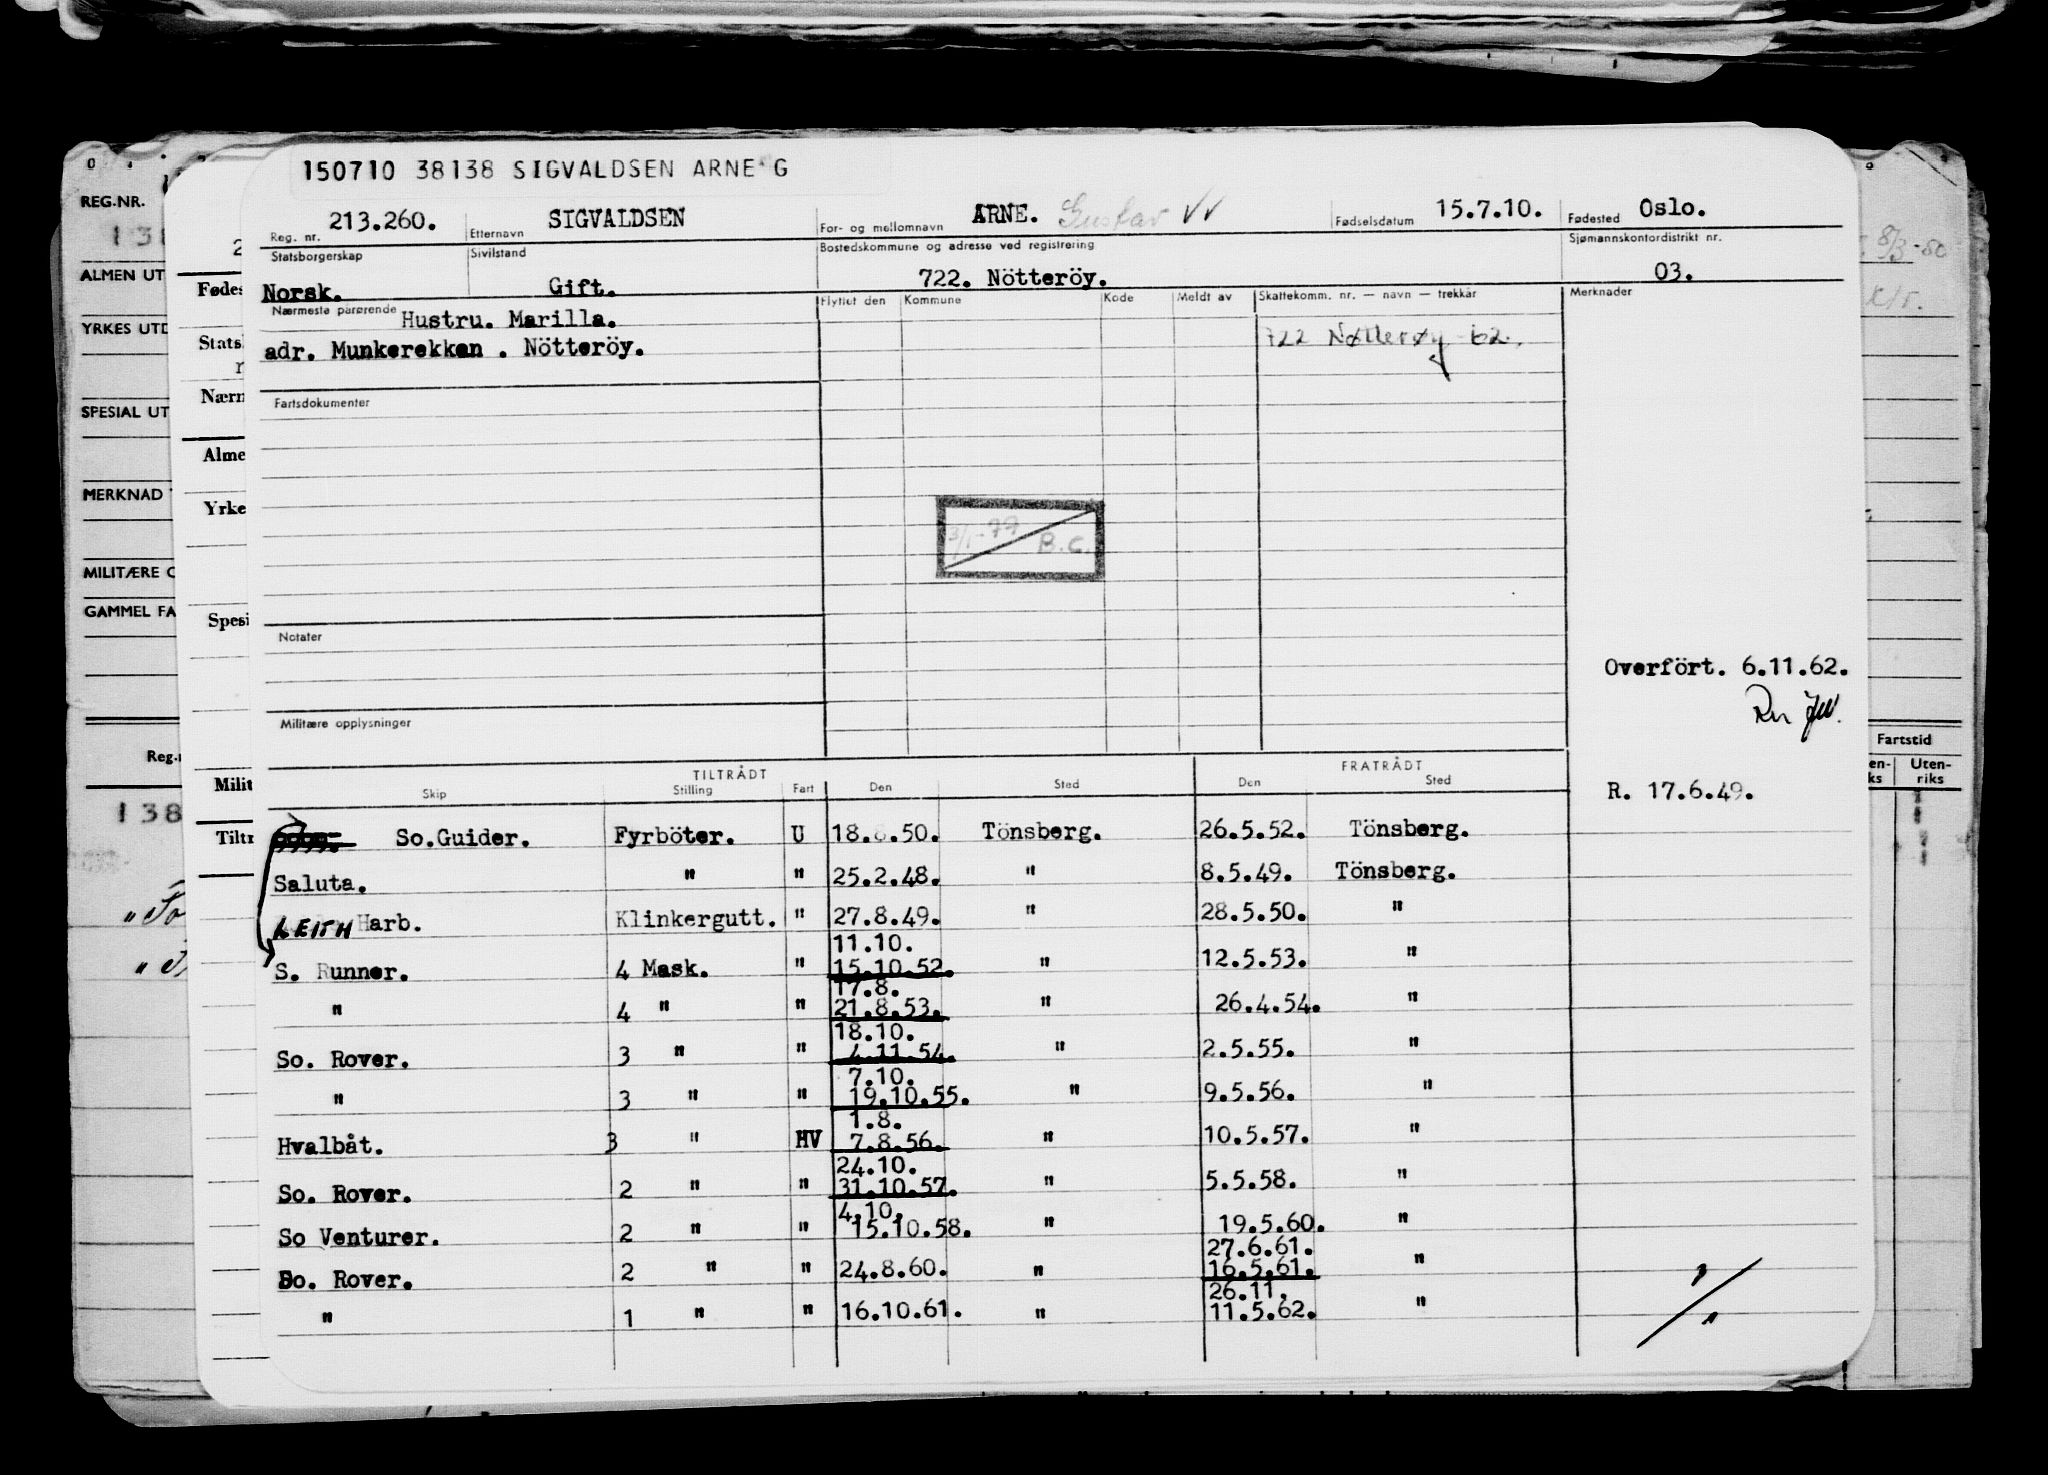 150710 38138 SIGVALDSEN ARNE G
REG.NR.
213.260. SIGVALDSEN ARNE. Gustav VV 15.7.10. Oslo.
Reg. nr. Etternavn For- og mellomnavn Fødselsdatum Fødested
Statsborgerskap Sivilstand Bostedskommune og adresse ved registrering Sjømannskontordistrikt nr.
Norsk. Gift. 722. Nötteröy. 03.
Nærmeste pårørende Hustru. Marilla. Flyttet den Kommune Kode Meldt av Skattekomm. nr. — navn — trekkår Merknader
adr. Munkerekken . Nötteröy. 722 Nøtterøy 62.
Fartsdokumenter
3/1-79 B.C.
Notater
Overfört. 6.11.62.
Militære opplysninger
TILTRÅDT FRATRÅDT
Skip Stilling Fart Den Sted Den Sted
R. 17.6.49.
So.Guider. Fyrböter. U 18.8.50. Tönsberg. 26.5.52. Tönsberg.
Saluta. " " 25.2.48. " 8.5.49. Tönsberg.
LEITH Harb. Klinkergutt. " 27.8.49. " 28.5.50. "
11.10.
S. Runner. 4 Mask. " 15.10.52. " 12.5.53. "
17.8.
" 4 " " 21.8.53. " 26.4.54. "
18.10.
So. Rover. 3 " " 4.11.54. " 2.5.55. "
7.10.
" 3 " " 19.10.55. " 9.5.56. "
1.8.
Hvalbåt. 3 " HV 7.8.56. " 10.5.57. "
24.10.
So. Rover. 2 " " 31.10.57. " 5.5.58. "
4.10.
So Venturer. 2 " " 15.10.58. " 19.5.60. "
27.6.61.
So. Rover. 2 " " 24.8.60. " 16.5.61. "
26.11.
" 1 " " 16.10.61. " 11.5.62. "
ALMEN UT
YRKES UTD
SPESIAL UT
MERKNAD
MILITÆRE O
GAMMEL FA
Reg.
138
Fødes
Stats
Nærn
Alme
Yrke
Spesi
Milit
Tiltr
8/3-50
Fartstid
Uten-
riks